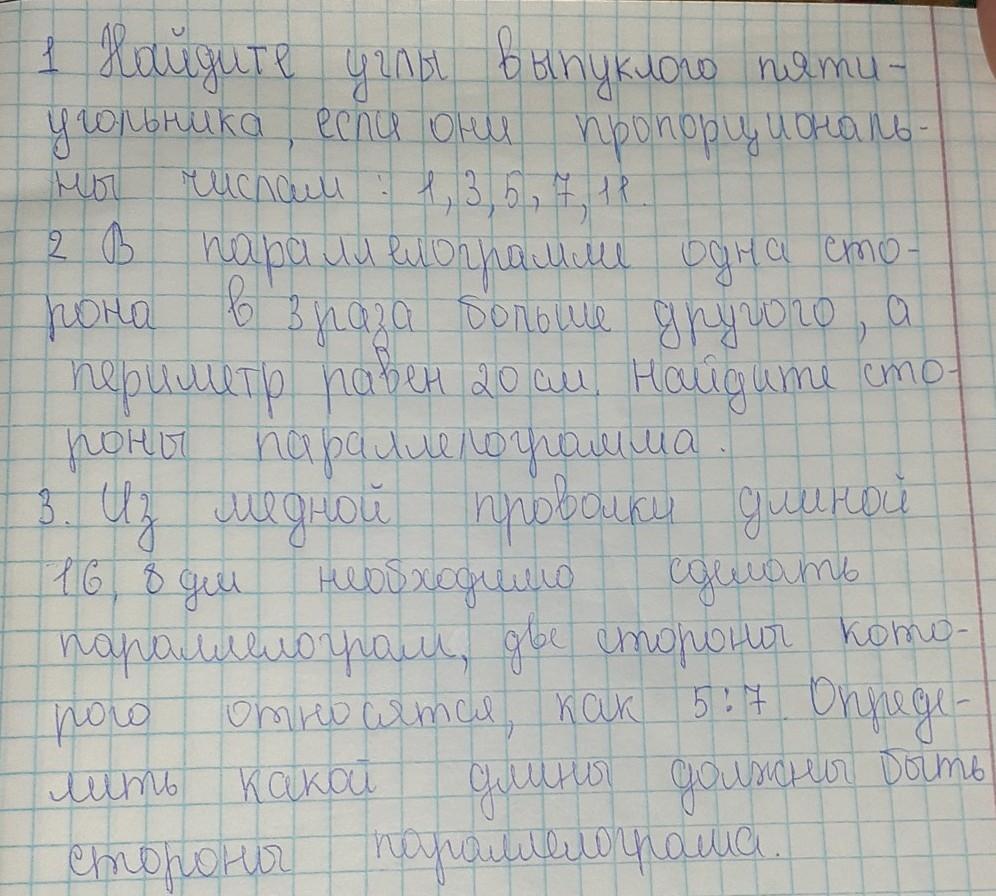 1 Найдите углы выпуклого пяти-
угольника, если они пропорциональ-
ны числам : 1, 3, 5, 7, 11.
2 В параллелограмме одна сто-
рона в 3 раза больше другого, а
периметр равен 20 см. Найдите сто-
роны параллелограмма.
3. Из медной проволки длиной
16, 8 дм необходимо сделать
параллелограм, две стороны кото-
рого относятся, как 5:7. Опреде-
лить какой длины должны быть
стороны параллелограма.